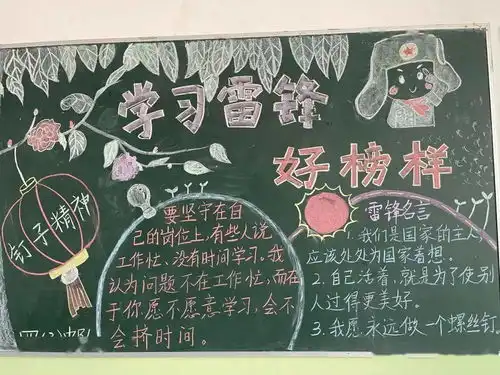 学习雷锋
好榜样
钉子精神
要坚守在自
己的岗位上,有些人说
工作忙、没有时间学习。我
认为问题不在工作忙,而在
于你愿不愿意学习,会不
会挤时间。
雷锋名言
1.我们是国家的主人,
应该处处为国家着想。
2.自己活着,就是为了使别
人过得更美好。
3.我愿永远做一个螺丝钉。